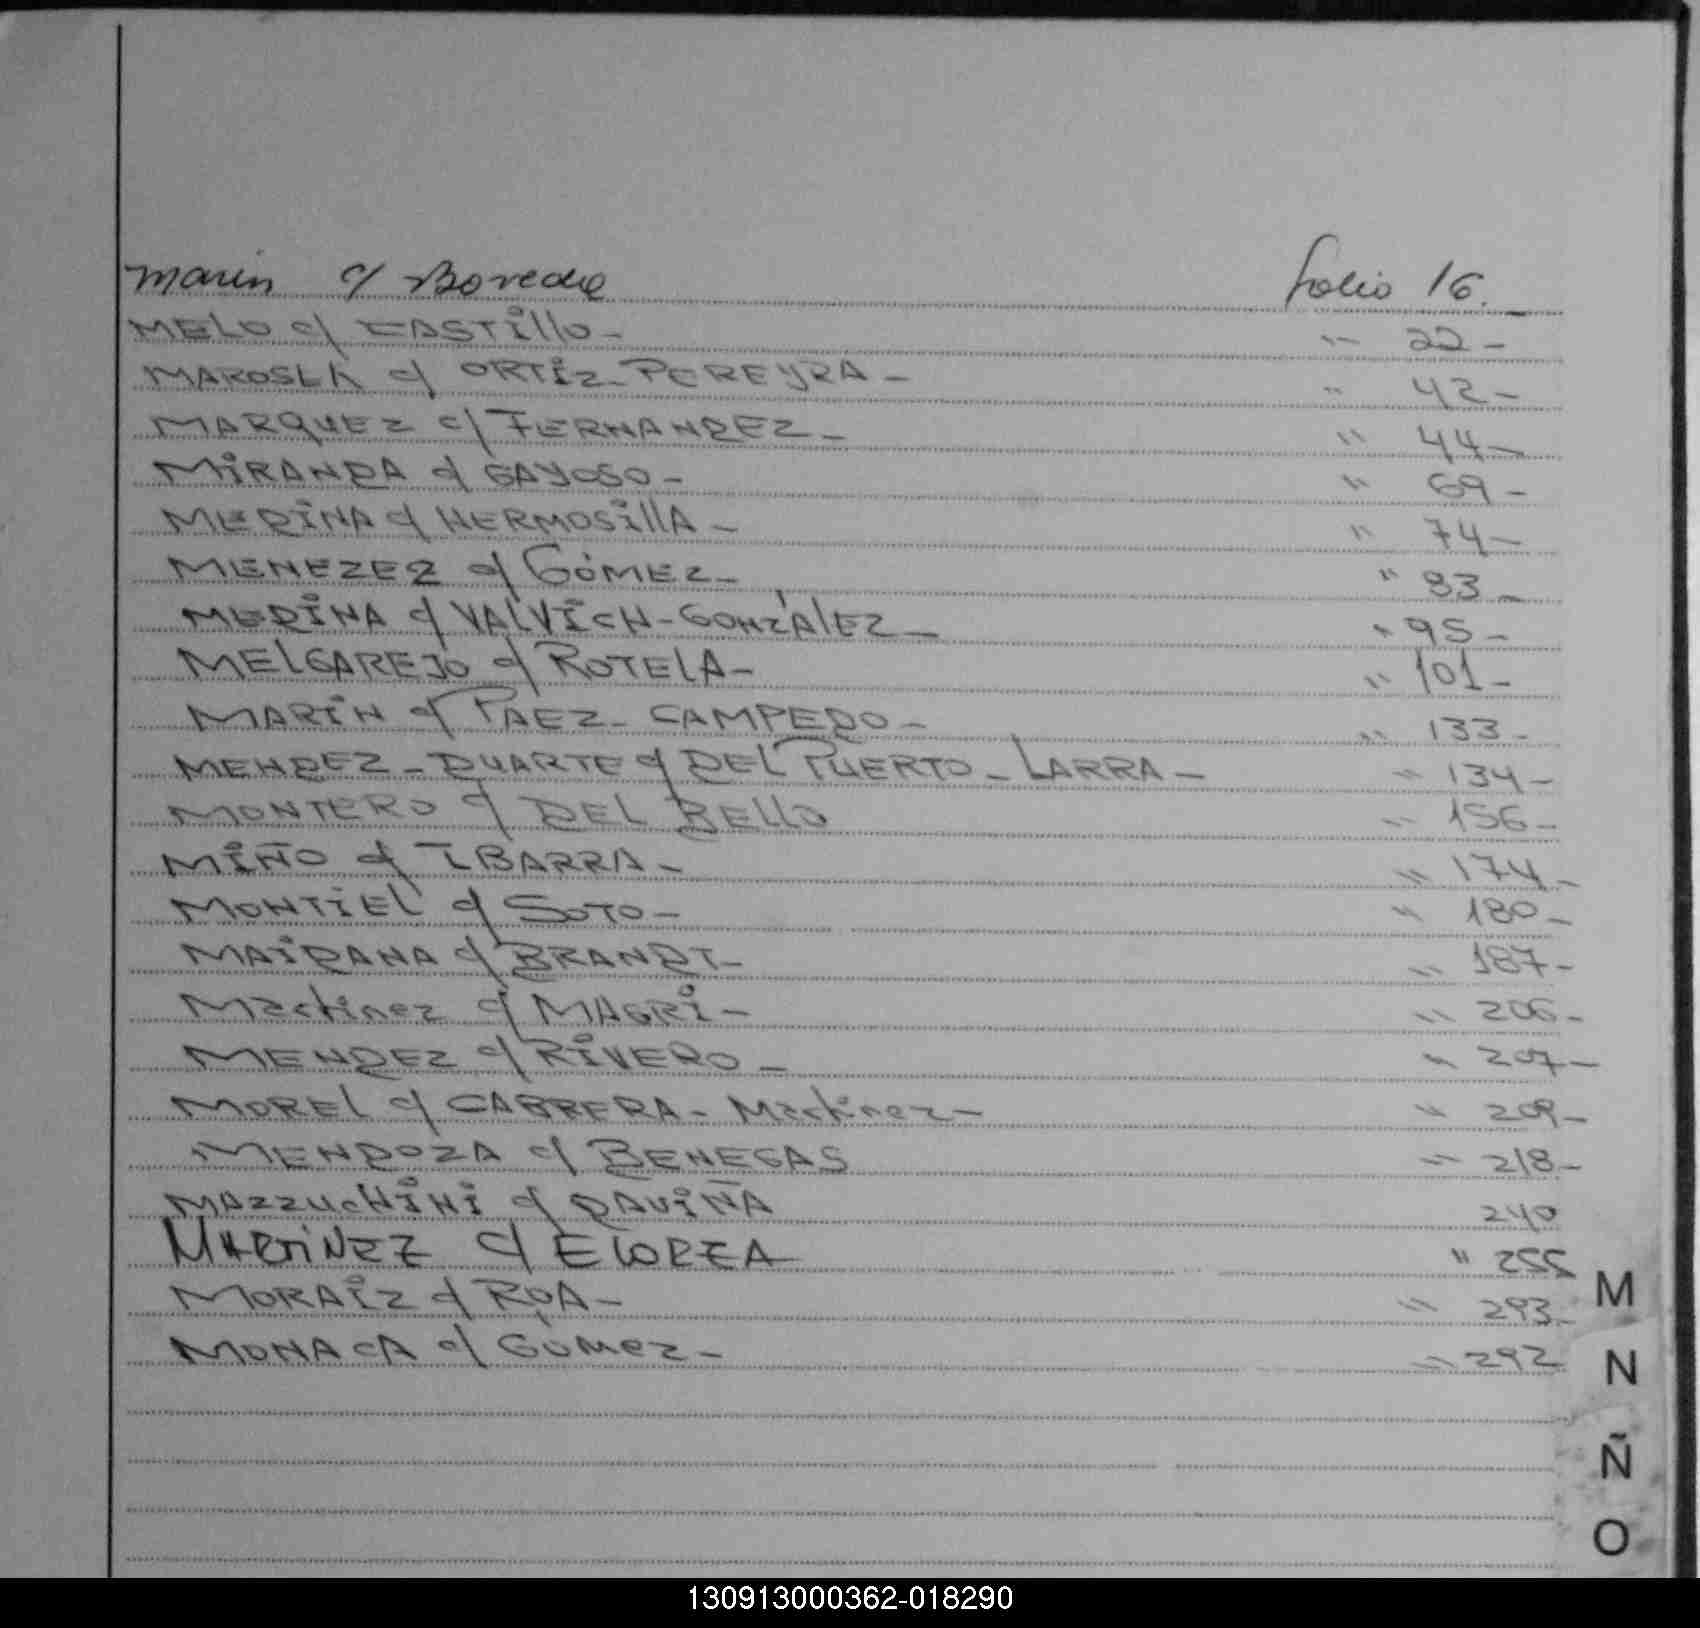 Marin c/ Boveda folio 16.
MELO c/ CASTillo - " 22 -
MAROSLA c/ ORTiz - PEREYRA - " 42 -
MARQUEZ c/ FERNANDEZ - " 44 -
MiRANDA c/ GAYOSO - " 69 -
MEDiNA c/ HERMOSillA - " 74 -
MENEZEZ c/ GÓMEZ - " 93 -
MEDiNA c/ VALViCH - GONZÁlEZ - " 95 -
MELGAREJO c/ ROTELA - " 101 -
MARiN c/ PAEZ - CAMPEDO - " 133 -
MENDEZ - DUARTE c/ DEL PUERTO - LARRA - " 134 -
MONTERO c/ DEL BELLO " 156 -
MiÑO c/ IBARRA - " 174 -
MONTiEL c/ SOTO - " 180 -
MAiDANA c/ BRANDT - " 187 -
MARtinez c/ MAGRi - " 206 -
MENDEZ c/ RiVERO - " 207 -
MOREL c/ CABRERA - MARtinez - " 209 -
MENDOZA c/ BENEGAS " 218 -
MAZZUCHiNi c/ DAViÑA 240
MARTiNEZ c/ ELORZA " 255
MORAiz c/ ROA - " 293 -
MONACA c/ GÓMEZ - " 292
M
N
Ñ
O
130913000362-018290